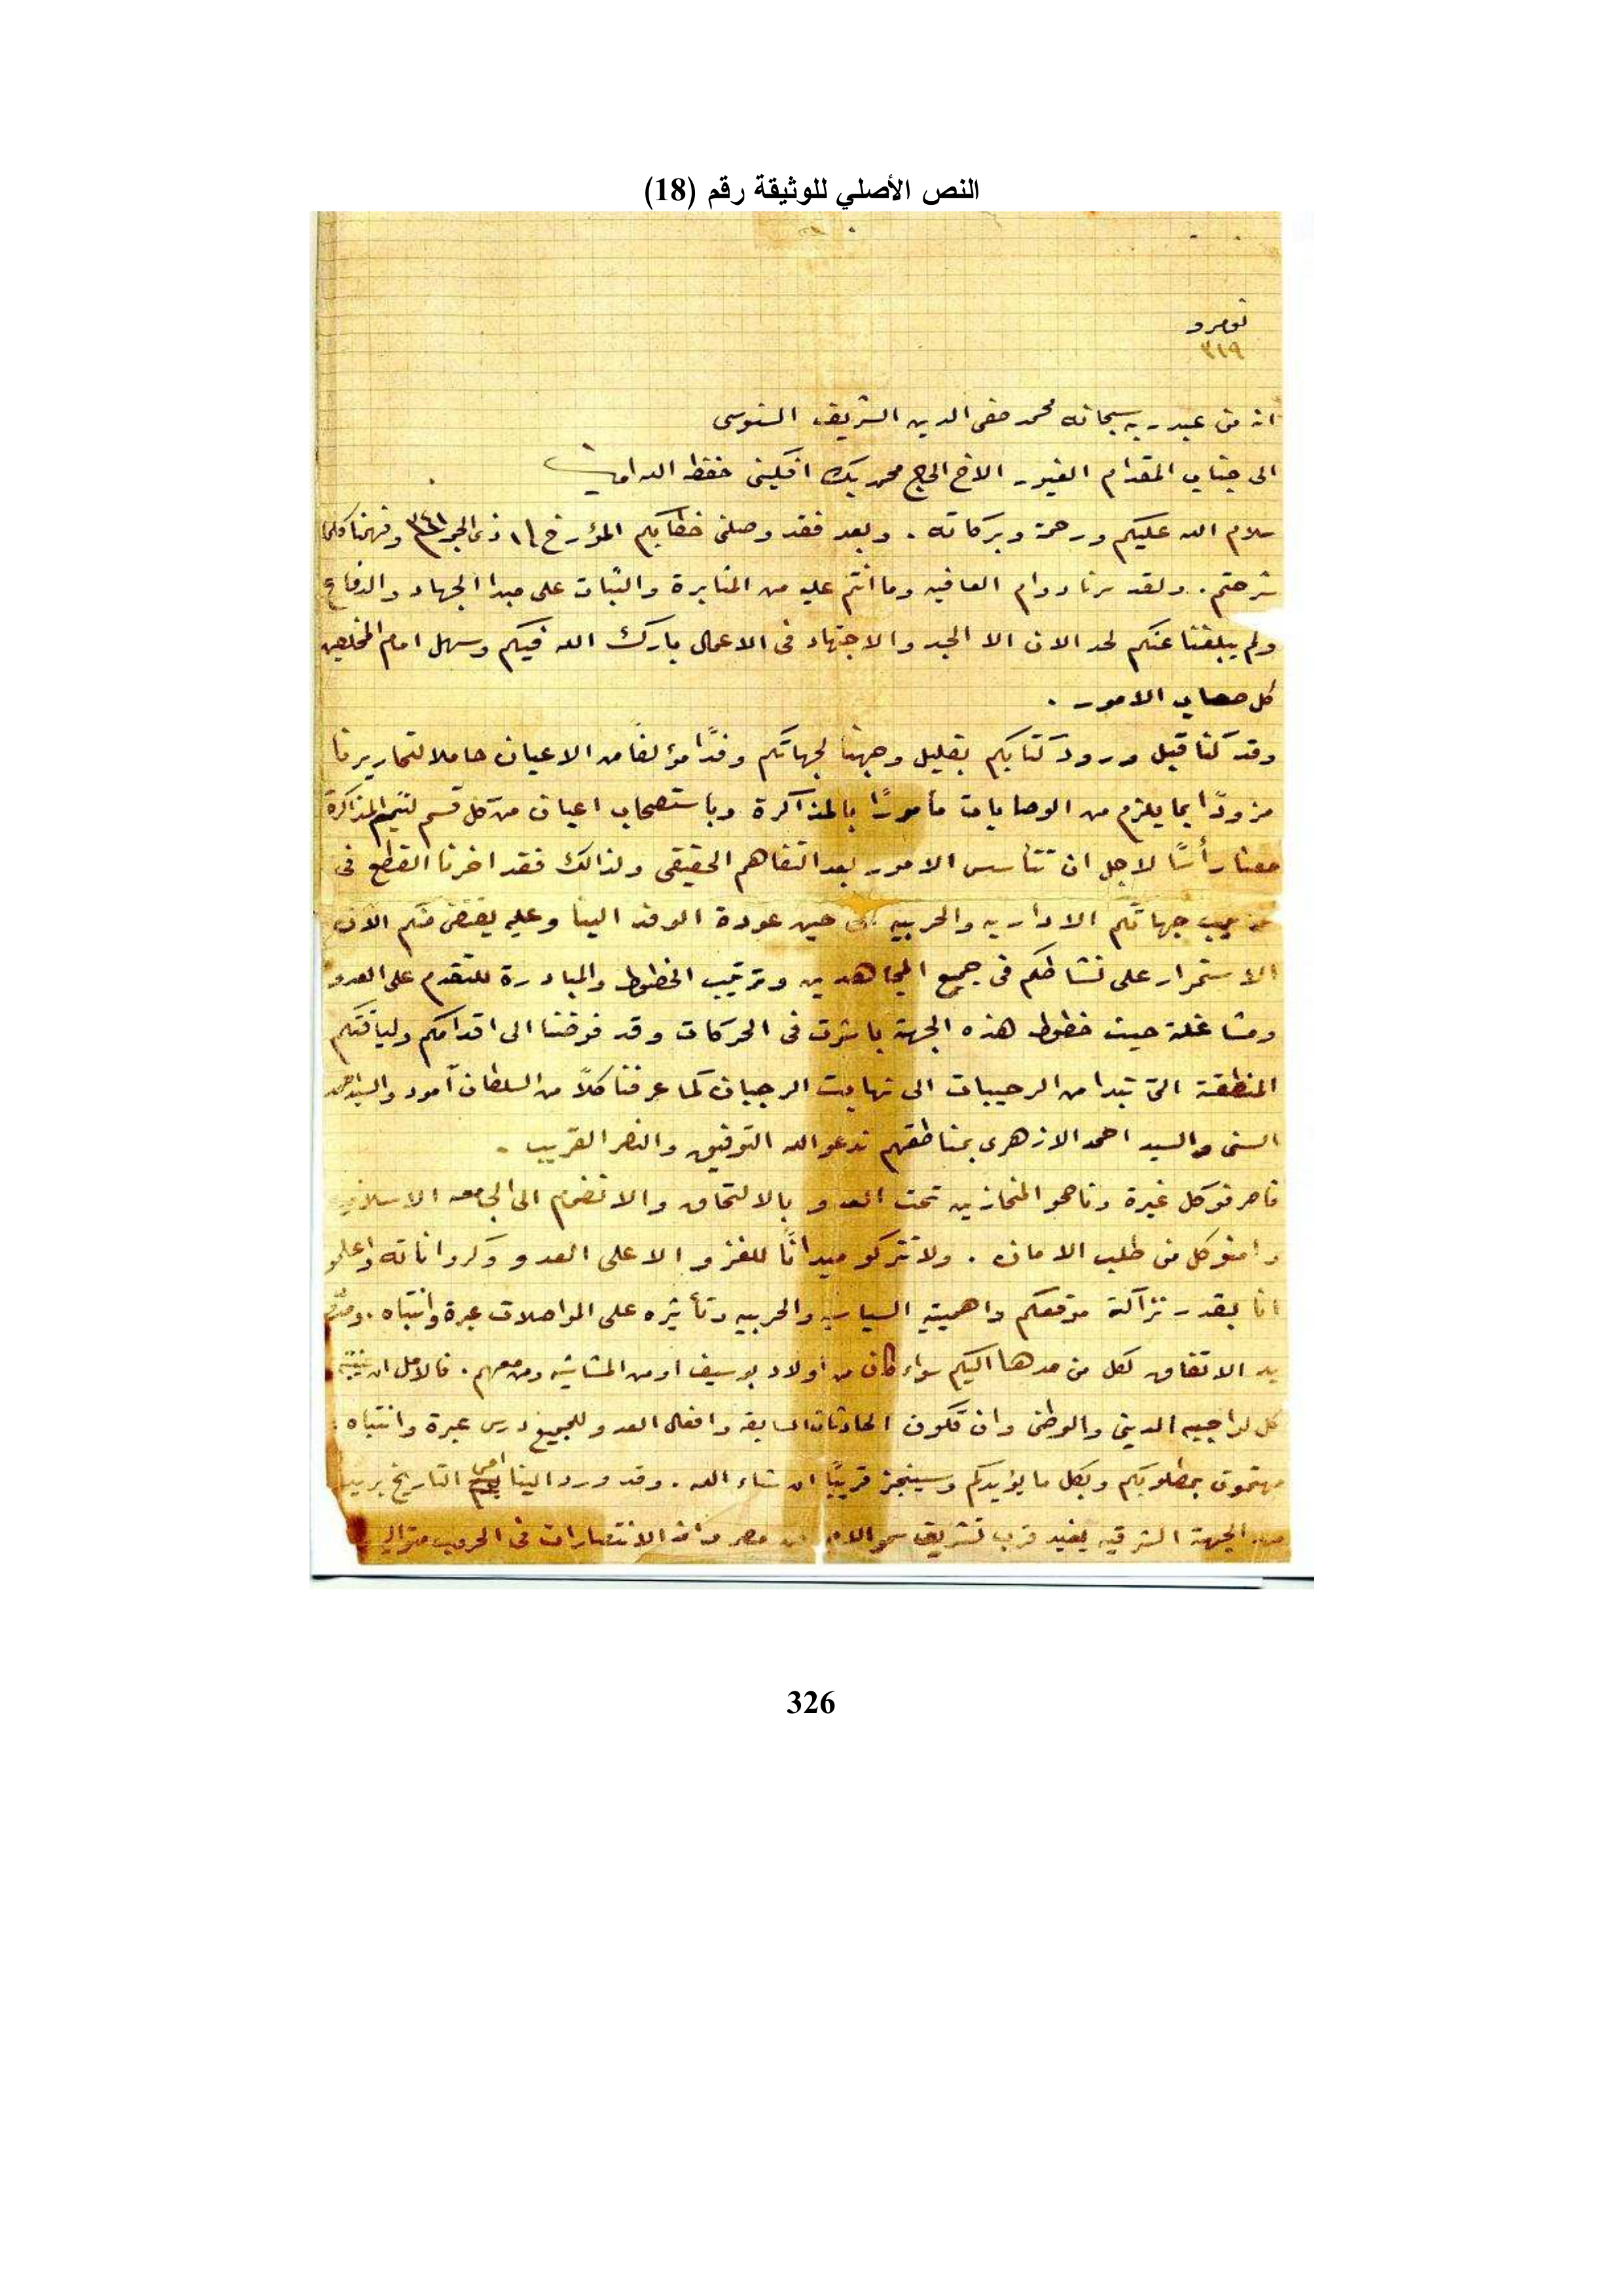 النص الأصلي للوثيقة رقم (18)
نومرو
٣١٩
انه من عبد ربه سبحانه محمد صفى الدين الشريف السنوسى
الى جناب المقدام الغيور الاخ الحاج محمد بيك افكينى حفظه الله امين
سلام الله عليكم ورحمته وبركاته . وبعد فقد وصلنى خطابكم المؤرخ ذى الحجة وفهمنا كلما
شرحتم . ولقد سرنا دوام العافيه وما انتم عليه من المثابرة والثبات على مبدا الجهاد والدفاع
ولم يبلغنا عنكم لحد الان الا الجد والاجتهاد فى الاعمال بارك الله فيكم وسهل امام المخلصين
كل صعاب الامور .
وقد كنا قبل ورود كتابكم بقليل وجهنا لجهاتكم وفدًا مؤلفًا من الاعيان حاملا لتحاريرنا
مزودًا بما يلزم من الوصايات مأمورًا بالمذاكرة وباستصحاب اعيان من كل قسم لتتم المذاكرة
معنا رأسًا لاجل ان تتأسس الامور بعد التفاهم الحقيقى ولذالك فقد اخرنا القطع فى
جهاتكم الاداريه والحربيه حين عودة الوفد الينا وعليه يقتضى منكم الآن
الاستمرار على نشاطكم فى جميع المجاهدين وترتيب الخطوط والمبادرة للتقدم على العدو
ومشاغلة حيث خطوط هذه الجهة باشرت فى الحركات وقد فوضنا الى اقدامكم ولياقتكم
المنطقة التى تبدا من الرحيبات الى نهايت الرجبان كما عرفنا كلاً من السلطان آمود والسيد احمد
السنى والسيد احمد الازهرى بمناطقهم ندعو الله التوفيق والنصر القريب .
فاصرفو كل غيرة وناصحو المنحازين تحت العدو بالالتحاق والانضمام الى الجامعه الاسلاميه
وامنو كل من طلب الامان . ولا تتركو ميدانًا للغزو الا على العدو وكروا ناته واعلمو
انا بقدر نزاكة موقعكم واهميته السياسيه والحربيه وتأثيره على المواصلات عبرة وانتباه .
يد الاتفاق لكل من مدها اليكم سواء كان من اولاد بوسيف او من المشاشيه ومن معهم . فالامل ان ينتبه
كل لواجبه الدينى والوطنى وان تكون الحادثات السابقه وافعال العدو للجميع درس عبرة وانتباه .
مهتمون بمطلوبكم وبكل ما يؤيدكم وسينجز قريبًا ان شاء الله . وقد ورد الينا امس التاريخ بريد
من الجهة الشرقيه يفيد قرب تشريف سمو الامير من مصر وان الانتصارات فى الحروب متوالي
326